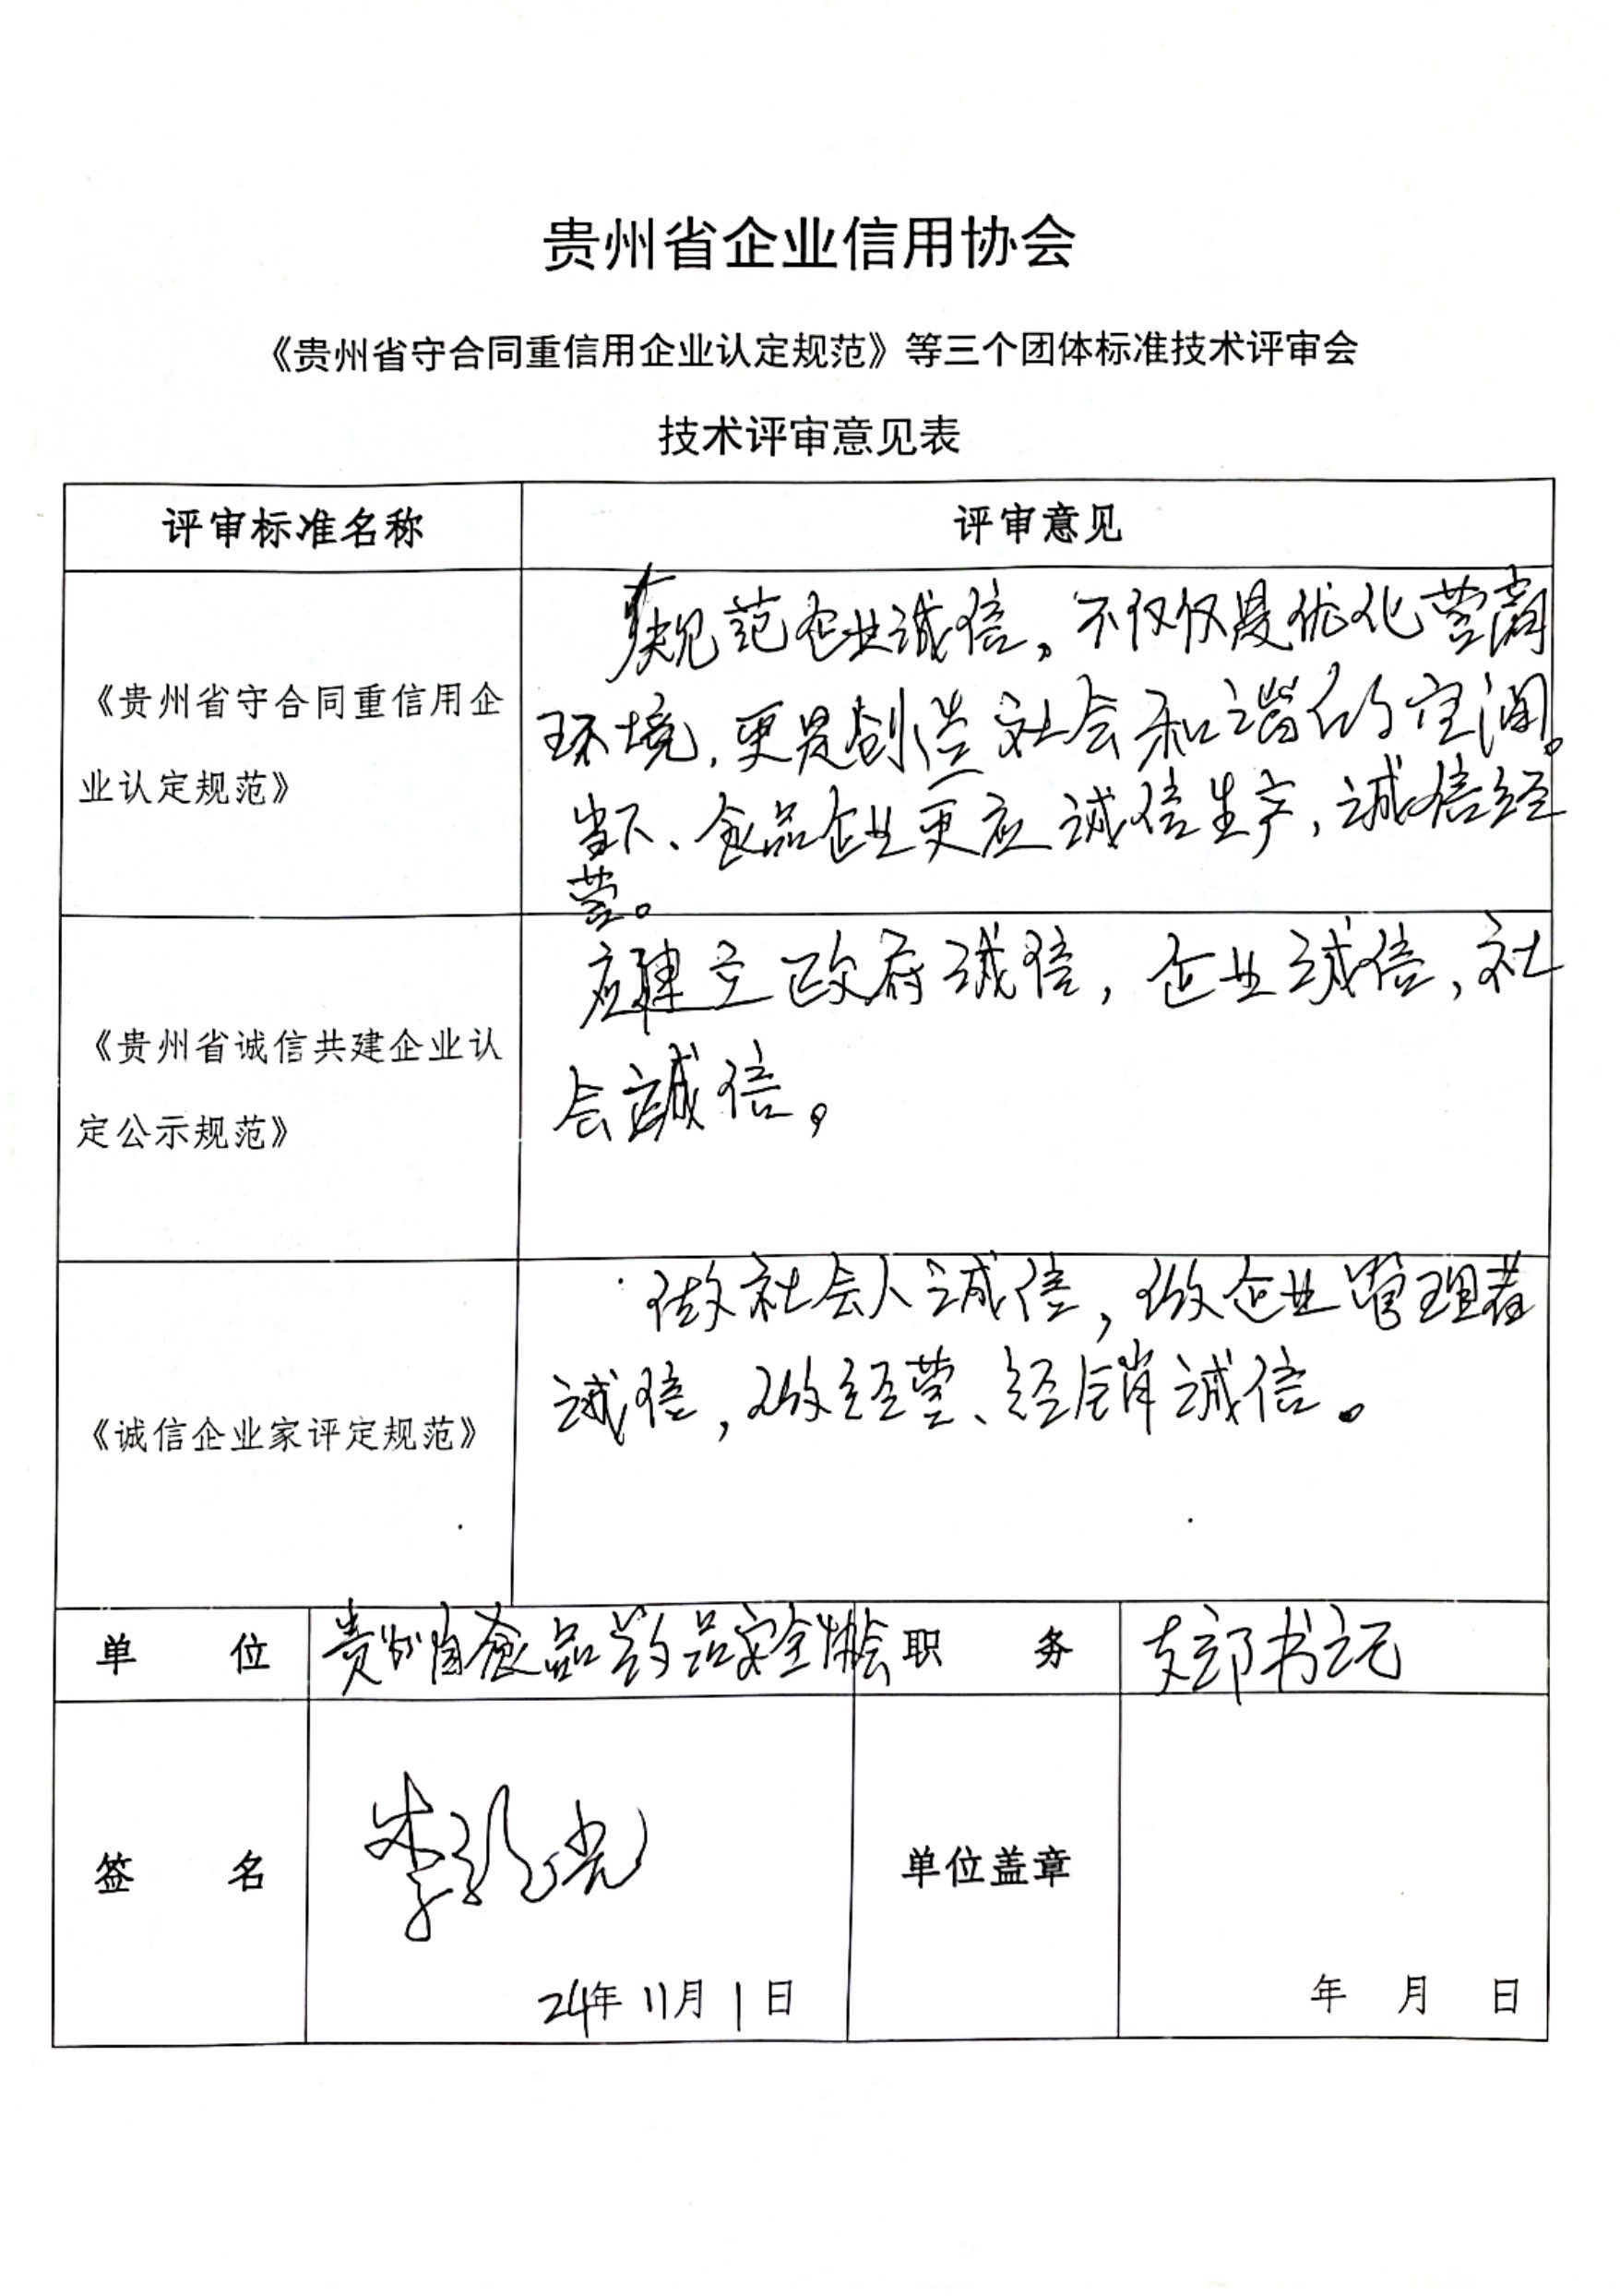 贵州省企业信用协会
《贵州省守合同重信用企业认定规范》等三个团体标准技术评审会
技术评审意见表
评审标准名称
评审意见
《贵州省守合同重信用企
业认定规范》
规范企业诚信。不仅仅是优化营商
环境，更是创造社会和谐的空间。
当下、食品企业更应诚信生产，诚信经
营。
《贵州省诚信共建企业认
定公示规范》
应建立政府诚信，企业诚信，社
会誠信。
《诚信企业家评定规范》
做社会人诚信，做企业管理者
诚信，做经营、经销诚信。
单 位
贵州省食品药品安全协会
职 务
支部书记
签 名
李 光
24年11月1日
单位盖章
年 月 日